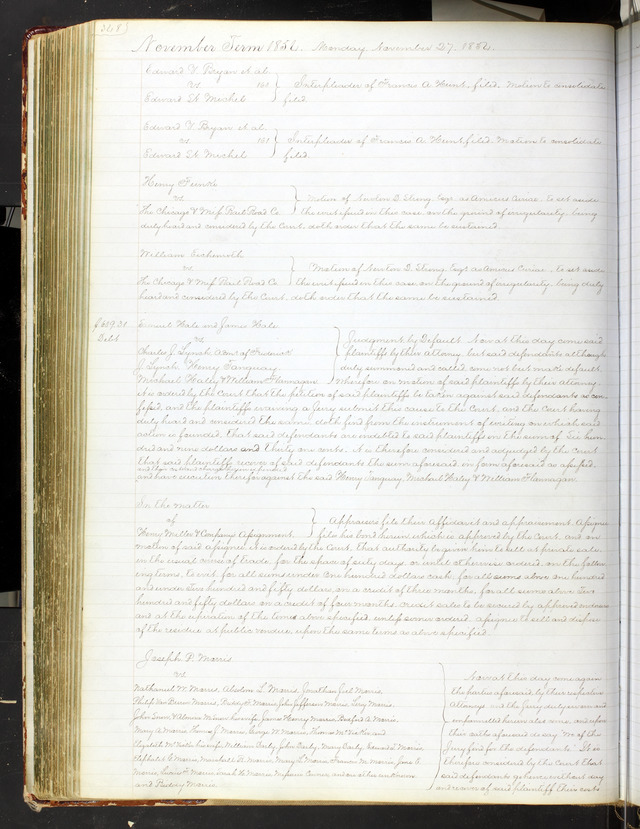 368
November Term 1852. Monday November 27, 1852.
Edward V Bryan et al
vs 160 } Interpleader of Francis A Hunt, filed. Motion to consolidate
Edward W Mechel filed.
Edward V Bryan et al
vs 161 } Interpleader of Francis A. Hunt filed. Motion to consolidate
Edward W Mechel filed.
Henry
vs } Motion of Newton D. Strong Esqr. as Amicus Curiae, to set aside
The Chicago & Missi Rail Road Co the writ filed in this case, on the ground of irregularity, being
duly heard and considered by the Court, doth order that the same be sustained.
William
vs } Motion of Newton D. Strong Esqr as Amicus Curiae, to set aside
The Chicago & Missi Rail Road Co. the writ filed in this case on the ground of irregularity, being duly
heard and considered by the Court doth order that the same be sustained.
$609.31 Samuel Hale and James Hale
Debt vs } Judgment by Default Now at this day come said
Charles J. Lynch Admr of Frederick plaintiffs by their Attorney, but said defendants although
J. Lynch Henry Tanguay duly summoned and called, come not but make default.
Michael Haley & William Flannagan Wherefore on motion of said plaintiffs by their attorney
it is ordered by the Court that the petition of said plaintiffs be taken against said defendants as con
fessed, and the plaintiffs waiving a Jury submit this cause to the Court, and the Court having
duly heard and considered the same, doth find from the instrument of writing on which said
action is founded, that said defendants are indebted to said plaintiffs in the sum of Six hun
dred and nine dollars and thirty one cents. It is therefore considered and adjudged by the Court
that said plaintiffs recover of said defendants the sum aforesaid in form aforesaid as assessed,
and have execution therefor against the said Henry Tanguay, Michael Haley & William Flannagan.
In the matter
of } Appraisers file their Affidavit and appraisement. Assignee
Henry Miller & Companys Assignment. files his bond herein which is approved by the Court, and on
motion of said assignee, it is ordered by the Court, that authority be given him to sell at private sale,
in the usual course of trade, for the space of sixty days, or until otherwise ordered, on the follow
ing terms, to wit, for all sums under One hundred dollars cash, for all sums above one hundred
and under two hundred and fifty dollars, on a credit of three months, for all sums above Two
hundred and fifty dollars on a credit of four months, credit sales to be secured by approved endorsers
and at the expiration of the time above specified, until otherwise ordered, assignee to sell and dispose
of the residue at public vendue, upon the same terms as above specified.
Joseph P. Morris
vs } Now at this day come again
Nathaniel W. Morris, Absolom L. Morris, Jonathan Morris the parties aforesaid by their respective
Philip Van Buren Morris, Morris John Jefferson Morris, Levy Morris, Attorneys and the Jury duly sworn and
John & wife, James Henry Morris, A. Morris, empannelled herein also come, and upon
Mary A Morris Thomas J Morris, George W Morris, Thomas and their oaths aforesaid do say "We of the
Elizabeth his wife, William Early, John Early, Mary Early, Morris Jury find for the defendants." It is
Elizabeth E Morris, Morris, Mary Morris, Morris, Jane E. therefore considered by the Court that
Morris, Morris, Sarah Morris said defendants go hence without day
and Morris. and recover of said plaintiff their costs